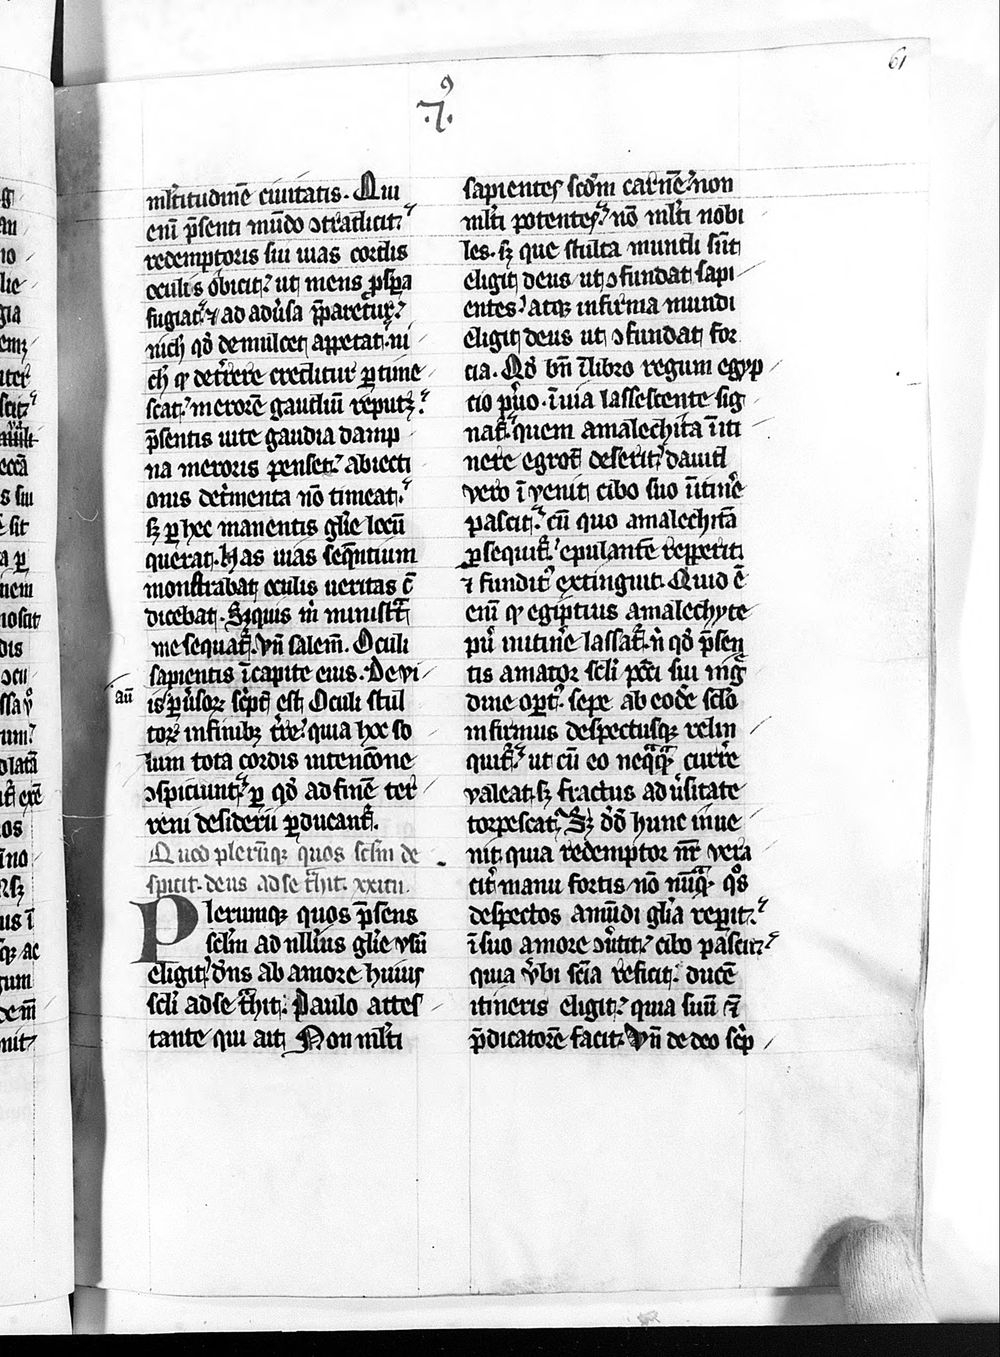 61
.7.
ml'titudinē ciuitatis. Qui
enī p̄senti mūdo ↄtradicit
redemptoris sui uias cordis
oculis obicit ut mens ꝓspa
fugiat ⁊ ad adu'sa p̄paretur
nich qđ demulcet appetat ni
ch' ꝙ det'rere creditur ꝑtime
scat merorē gaudiū reputꝫ
p̄sentis uite gaudia damp
na meroris penset abiecti
onis det'menta nō timeat
sꝫ ꝑ hec manentis gl'ie locū
querat. Has uias seq̄ntium
monstrabat oculis ueritas c̄
dicebat. Siquis m' ministrat
me sequat'. Vn̄ salem̄. Oculi
sapientis ī capite eius. De vi
au'
oculi stul
toꝝ in finibꝫ t're quia hec so
lum tota cordis intencōne
ↄspiciunt ꝑ qđ ad finē ter
reni desiderii ꝑducant'.
Quod pler'ūqꝫ quos sclm de
spicit. deus ad se t'hit. xxiiii.
Plerumqꝫ quos p̄sens
sclm ad nllius gl'ie vsū
eligit dn̄s ab amore huius
scl'i ad se t'hit. Paulo attes
tante qui ait Non ml'ti
sapientes scd'm carnē non
ml'ti potentes nō ml'ti nobi
les. sꝫ que stulta mundi sūt
eligit deus ut ↄfundat sapi
entes atqꝫ infirma mundi
eligit deus ut ↄfundat for
cia. Qđ bn̄ ī libro regum egyp
tio p'uo ī uia lassescente sig
nat' quem amalechita ī iti
nere egrot' deserit dauid
vero īvenit cibo suo ī itine
pascit cū quo amalechitā
ꝑsequit' epulantē repperit
⁊ fundit' extinguit. Quid ē
enī ꝙ egiptius amalechyte
pu' in itin'e lassat' n' qđ p̄sen
tis amator scl'i pcc'i sui nig'
dine opt' sepe ab eodē sclo
infirmus despectusqꝫ relin
quit' ut cū eo neq̄q̄ curr'e
valeat sꝫ fractus adu'sitate
torpescat. Sꝫ dd hunc inue
nit quia redemptor nr̄ vera
cit' manu fortis nō nūq̄ q's
despectos a mūdi gl'ia rep'it
ī suo amore ↄu'tit cibo pascit
quia v'bi scīa reficit. ducē
itineris eligit quia suū ⁊
p̄dicatorē facit Vn̄ de deo sc'p